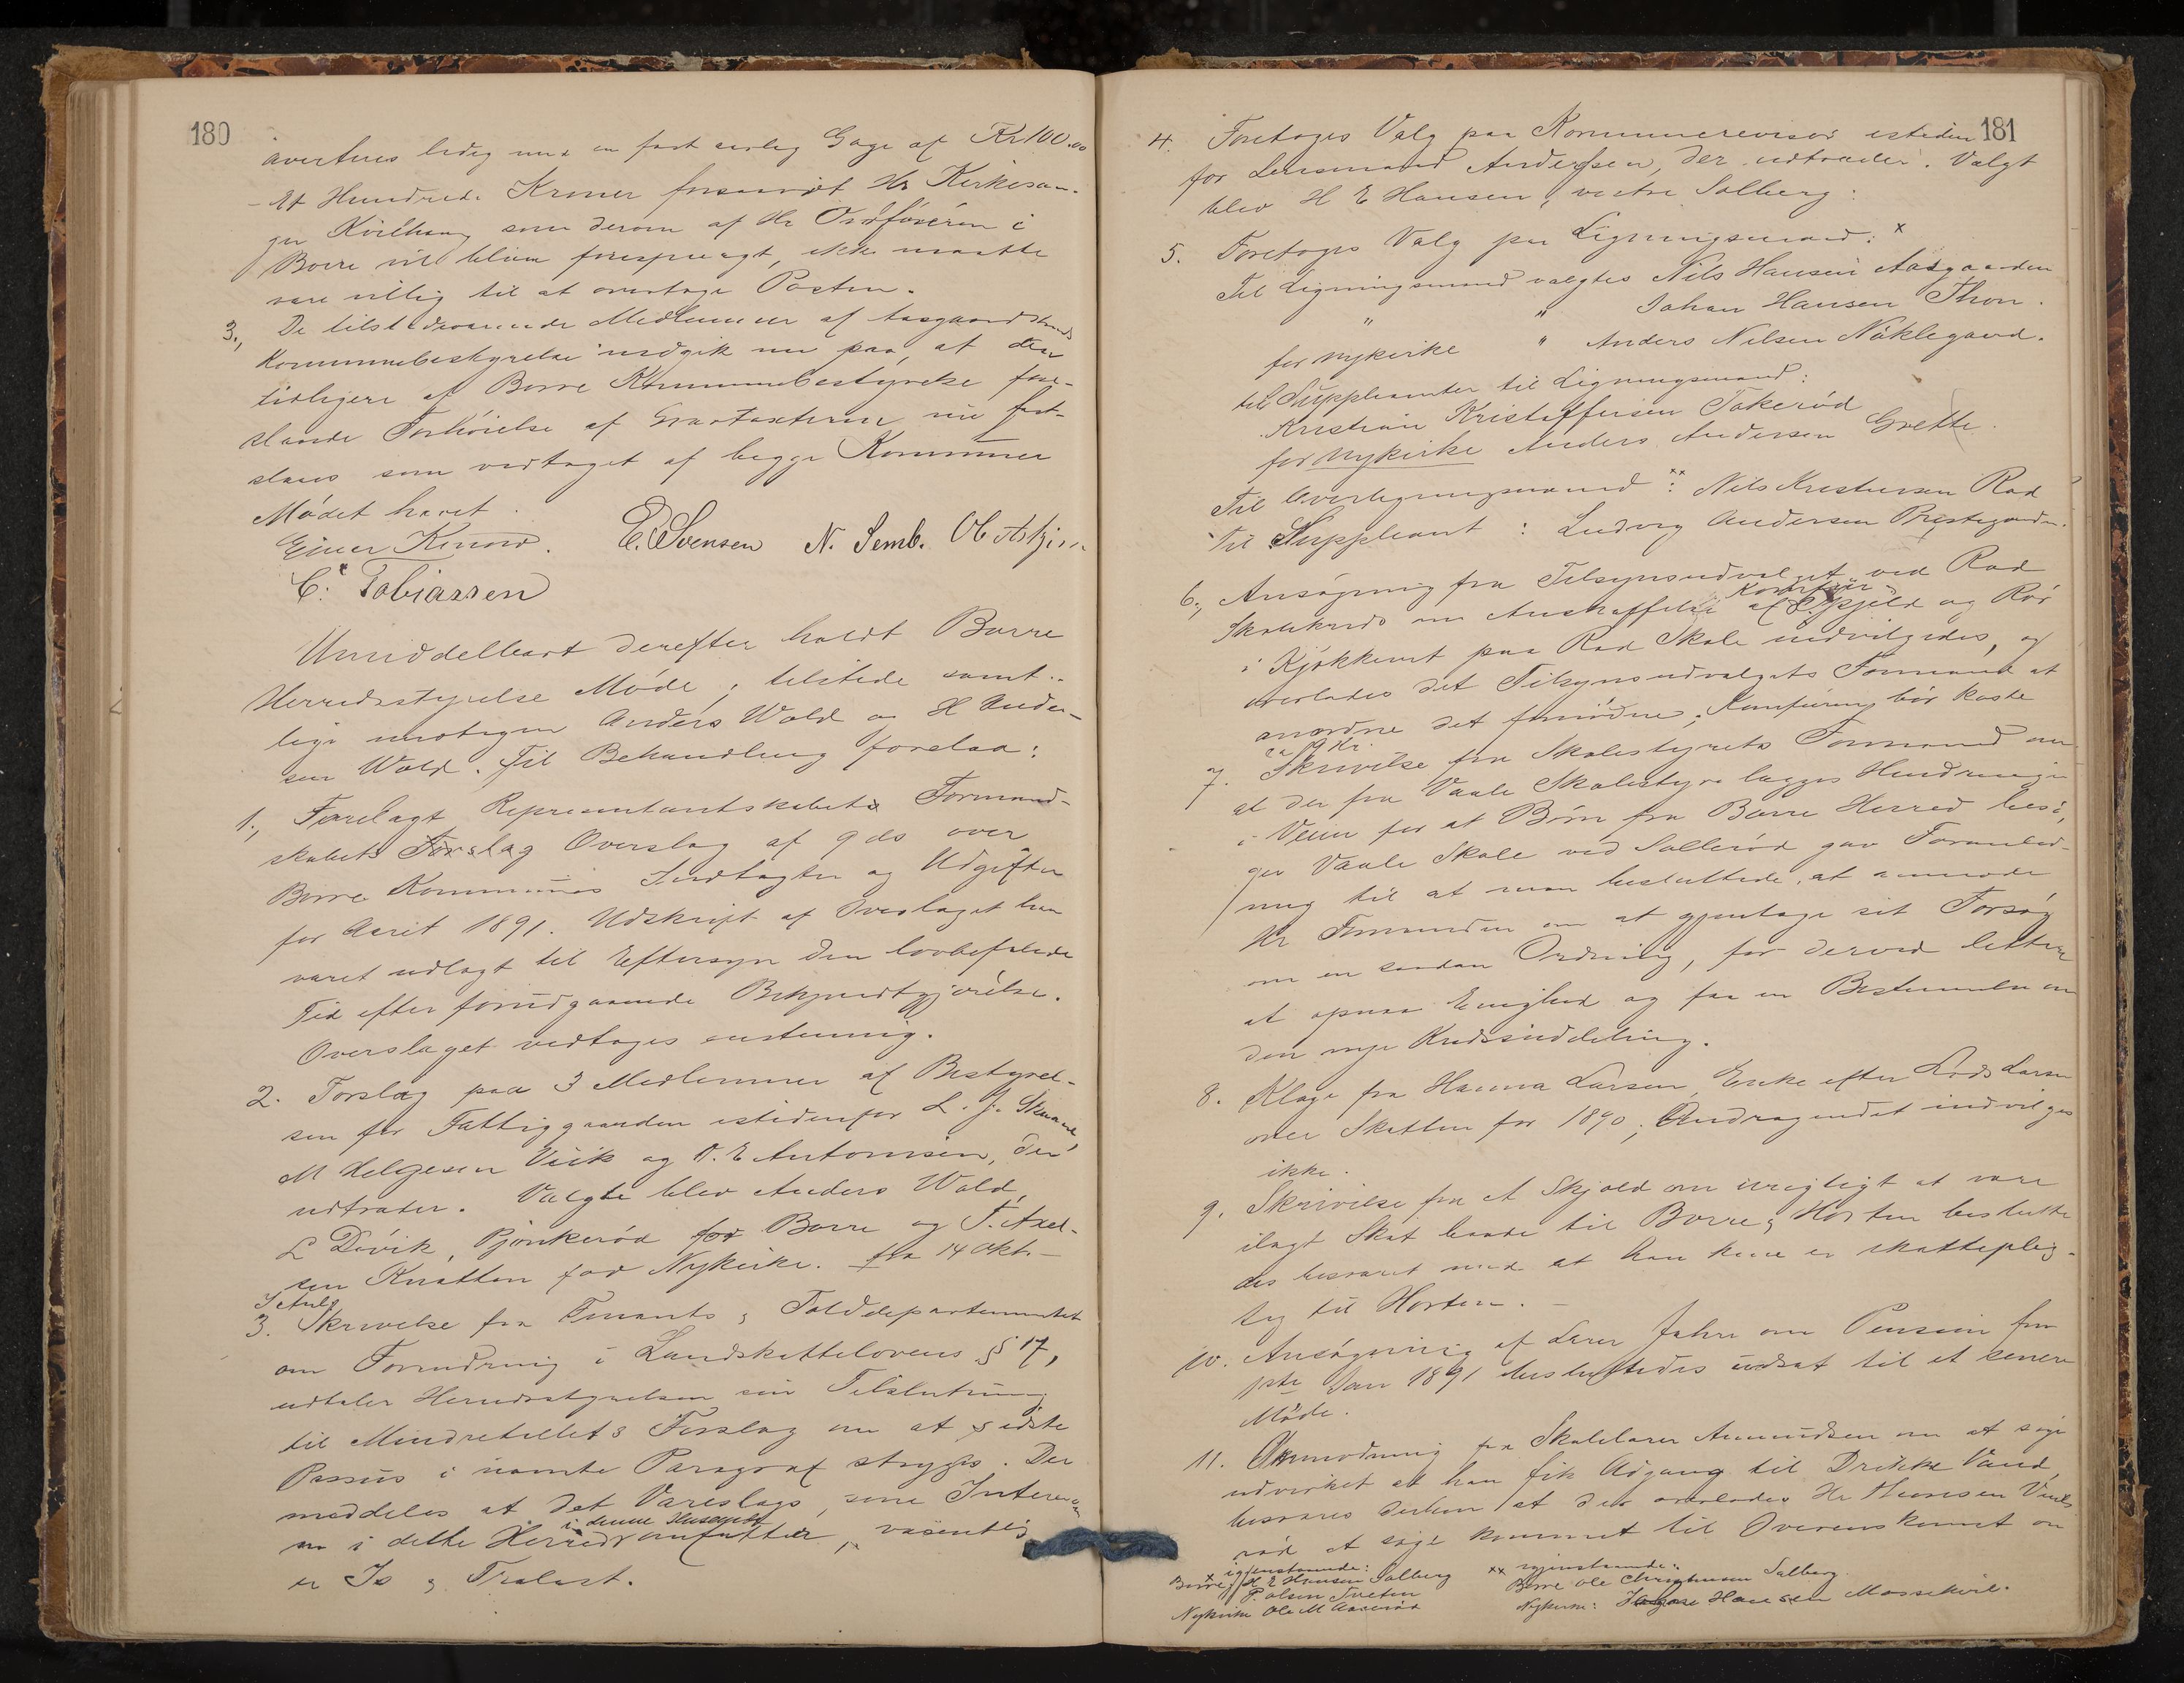 180
averteres ledig med en fast aarlig Gage af Kr 100.00
- Et Hundrede Kroner forsaavidt Hr Kirkesan-
ger som derom af Hr Ordføreren i
Borre vil blive forespurgt, ikke maatte
være villig til at overtage Posten.
3., De tilstedeværende Medlemmer af Aasgaardstrands
Kommunebestyrelse indgik nu paa, at den
tidligere af Borre Kommunebestyrelse fore-
slaaede Forhøielse af nu fast-
slaaes som vedtaget af begge Kommuner
Mødet hævet.
Einer E. Svensen N. Semb.
C. Tobiassen
Umiddelbart derefter holdt Borre
Herredsstyrelse Møde; tilstede samt-
lige undtagen Anders Wold og H Ander-
sen Wold. Til Behandling forelaa:
1., Forelagt Repræsentantskabets Formand-
skabets Forslag Overslag af 9 ds over
Borre Kommunes Indtægter og Udgifter
for Aaret 1891. Udskrift af Overslaget har
været udlagt til Eftersyn den lovbefalede
Tid efter forudgaaende Bekjendtgjørelse.
Overslaget vedtages enstemmig.
2. Forslag paa 3 Medlemmer af Bestyrel-
sen for Fattiggaarden istedenfor L. J.
M Helgesen Viik og A. E Antonisen, der
udtræder. Valgte blev Anders Wold,
L Døvik, Bjønkerød for Borre og T. Axel-
sen Knatten for Nykirke. fra 14 Okt. -
3. Skrivelse fra Finants & Tolddepartementet
om Forandring i Landskattelovens § 17,
udtaler Herredsstyrelsen sin Tilslutning
til Mindretallets Forslag om at sidste
Passus i nævnte Paragraf stryges. Der
meddeles at det Vareslags, som
i denne Henseende
i dette Herred omfatter, væsentlig
er Is & Trælast.
181
4. Foretoges Valg paa Kommunerevisor isteden
for Lensmand Anderssen, der udtræder. Valgt
blev H E Hansen, vestre Solberg.
5. Foretoges Valg paa Ligningsmænd: x
Til Ligningsmænd valgtes Nils Hansen Aasgaarden
" " Johan Hansen Thon.
for Nykirke " Anders Nilsen Nøklegaard.
til Suppleanter til Ligningsmænd:
Kristian Kristoffersen Tokerød
for Nykirke Anders Andersen Grette.
Til Overligningsmænd xx: Nils Kristiansen Rød
Til Suppleant: Ludvig Andersen Prestegaarden.
6., Ansøgning fra Tilsynsudvalget ved Rød
Skolekreds om Anskaffelse af Spjeld og Rør
i Kjøkkenet paa Rød Skole indvilgedes, og
overlodes det Tilsynsudvalgets Formand at
anordne det fornødne; Komfuren bør koste
ca Kr
7. Skrivelse fra Skolestyrets Formand om
at der fra Vaale Skolestyre lægges Hindringer
i Veien for at Børn fra Borre Herred besø-
ger Vaale Skole ved Sollerød gav Foranled-
ning til at man besluttede, at anmode
Hr Formanden om at gjentage sit Forsøg
om en saadan Ordning, for derved lettere
at opnaa Enighed og faa en Bestemmelse om
den nye Kredsinddeling.
8. Klage fra Hanna Larsen, Enke efter Lars Larsen
over Skatten for 1890; Andragendet indvilges
ikke.
9. Skrivelse fra A Skjold om urigtigt at være
ilagt Skat baade til Borre & Horten beslutte
des besvaret med at han kun er skatteplig-
tig til Horten. -
10. Ansøgning af Lærer Jahre om Pension fra
1ste Jan 1891 besluttedes udsat til et senere
Møde.
11. Anmodning fra Skolelærer Amundsen om at søge
udvirket at han fik Adgang til Drikke Vand
besvares derhen at det overlodes Hr Thoresen
rød at søge kommet til Overenskomst om
x igjenstaaende:
Borre: H E Hansen Solberg
P. Olsen Tveten
Nykirke Ole M Aaserød
xx igjenstaaende:
Borre Ole Christiansen Solberg.
Nykirke: Hansen